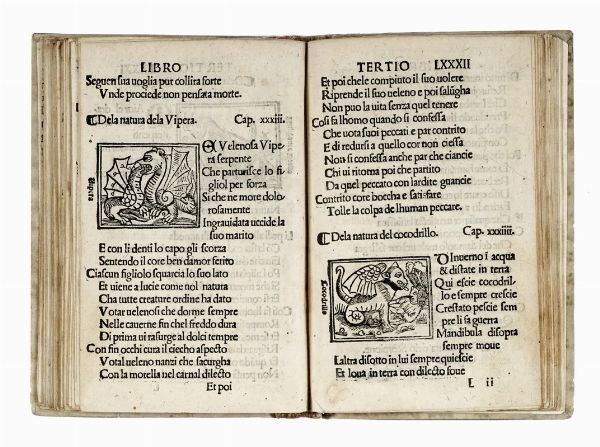 LIBRO
Seguen sua uoglia pur collira forte
Vnde prociede non pensata morte.
Dela natura dela Vipera. Cap. xxxiii.
Vipera
Velenosa Vipe
ra serpente
Che parturisce lo fi
gliol per forza
Si che ne more dolo
rosamente
Ingrauidata uccide la
suo marito
E con li denti lo capo gli scorza
Sentendo il core ben damor ferito
Ciascun figliolo squarcia lo suo lato
Et uiene a lucie come nol natura
Cha tutte creature ordine ha dato
Votar uelenosi che dorme sempre
Nelle cauerne fin chel freddo dura
Di prima ui rasurge al dolci tempre
Con fin occhi cura il ciecho aspecto
Votal ueleno nanzi che sacurgha
Con la morella nel carnal dilecto
Et poi
TERTIO LXXXII
Et poi chele compiuto il suo uolere
Riprende il suo ueleno e poi salsigha
Non puo la uita senza quel tenere
Cosi fa lhomo quando si confessa
Che uota suoi peccati e par contrito
E di redursi a quello cor non ciessa
Non si confessa anche par che ciancie
Chi ui ritorna poi che partito
Da quel peccato con lardite guancie
Contrito core boccha e satisfare
Tolle la colpa de lhuman peccare.
Dela natura del cocodrillo. Cap. xxxiiii.
Cocodrillo
D Inuerno ī acqua
& distate in terra
Qui escie cocodril
lo e sempre crescie
Crestato pescie sem
pre li fa guerra
Mandibula disopra
sempre moue
Laltra disotto in lui sempre quiescie
Et loua in terra con dilecto foue
L ii